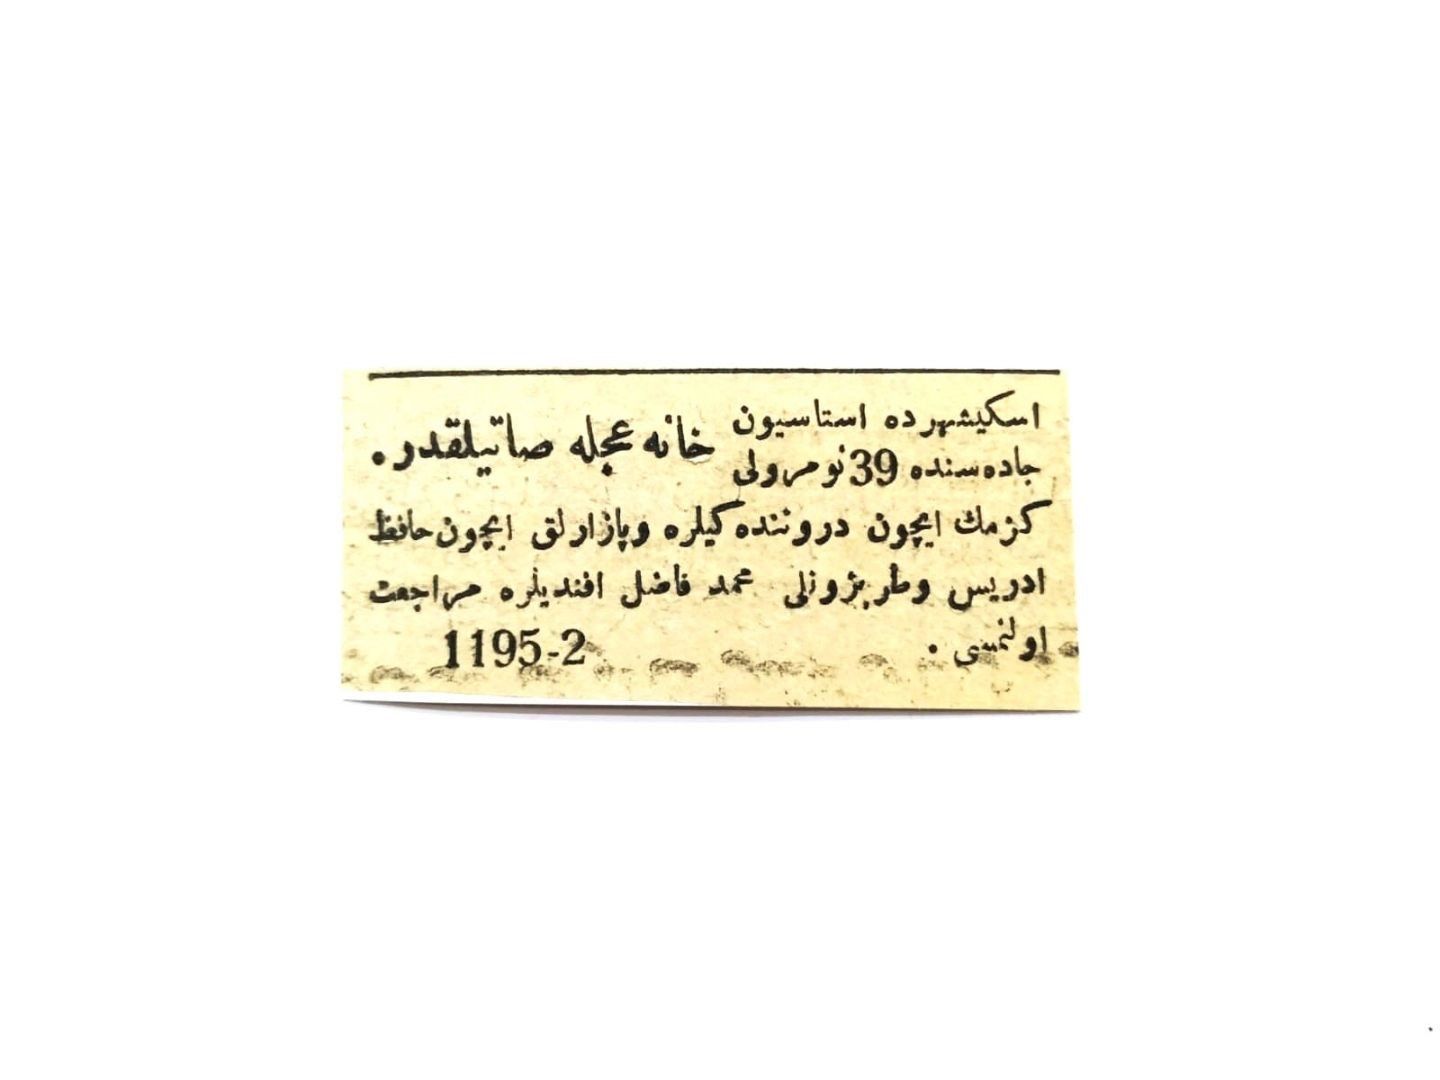 اسكيشهرده استاسيون
جاده‌سنده 39 نومرولى
خانه عجله صاتيلقدر.
كزمك ايچون دروننده كيلره وپازارلق ايچون حافظ
ادريس وطربزونلى محمد فاضل افنديلره مراجعت
اولنمسى .
1195-2